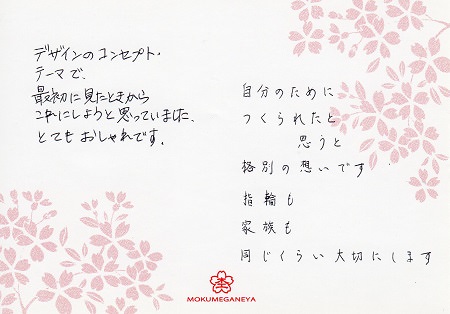 デザインのコンセプト・
テーマで、
最初に見たときから
これにしようと思っていました、
とてもおしゃれです。
自分のために
つくられたと
思うと
格別の想いです
指輪も
家族も
同じくらい大切にします
MOKUMEGANEYA